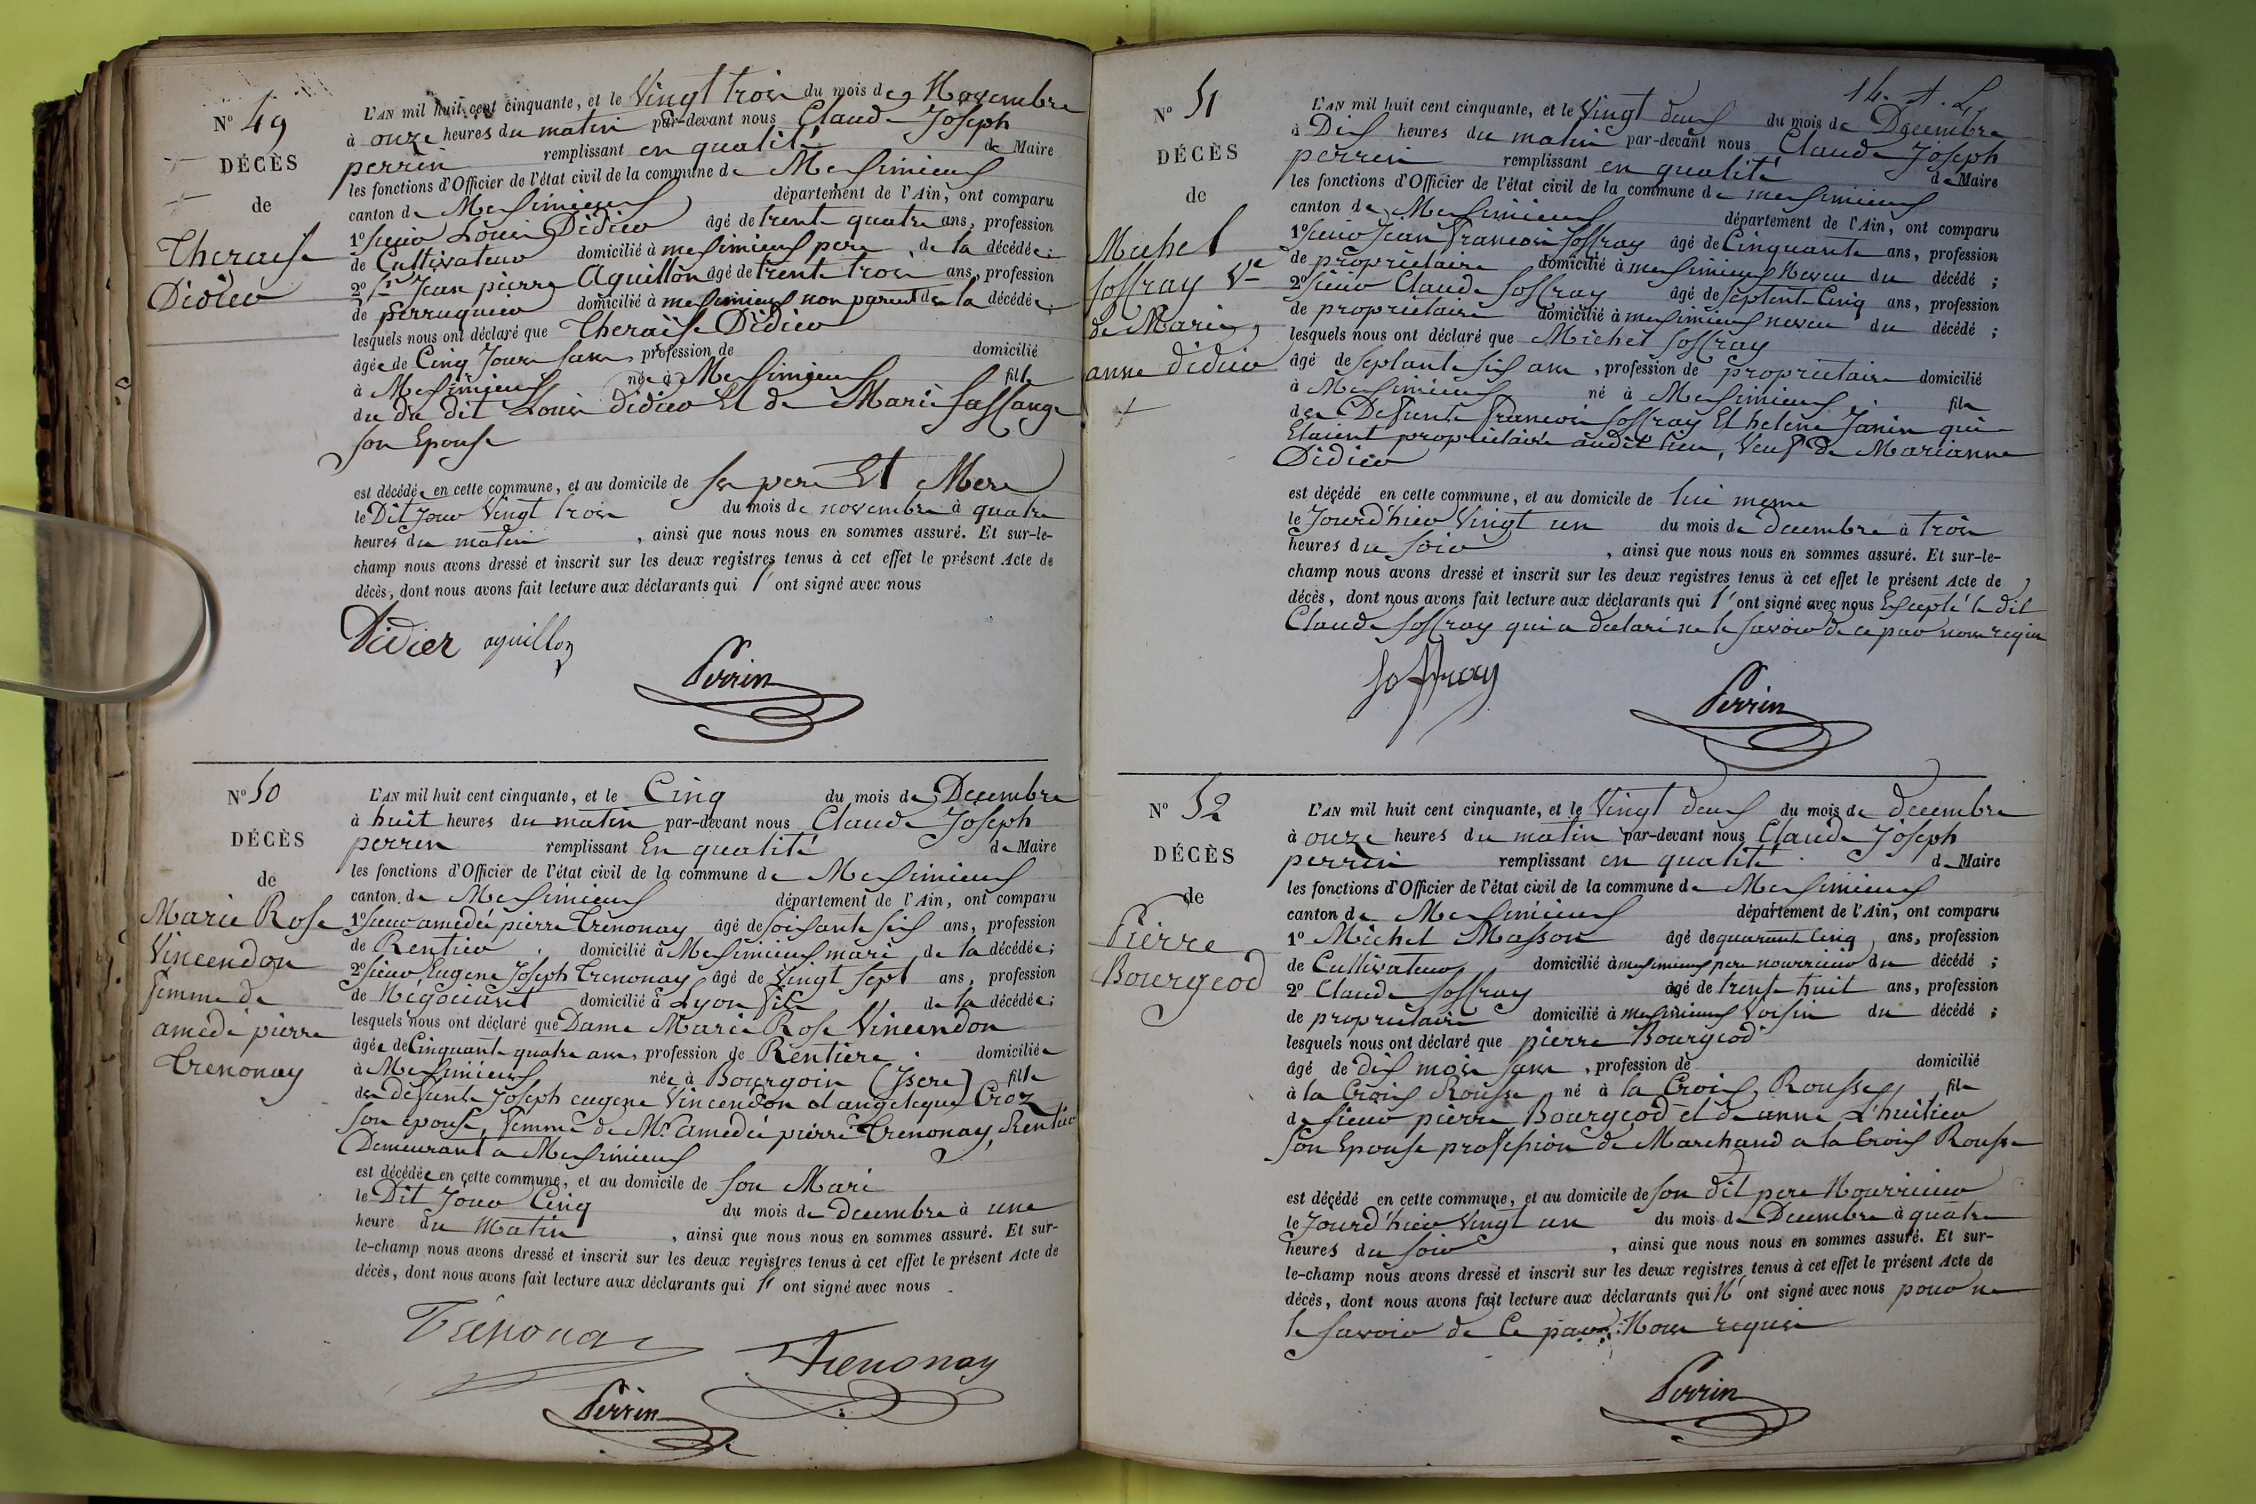 Nº 49
DÉCÈS
de
Theraise
Didier
L'AN mil huit cent cinquante, et le Vingt trois du mois de Novembre
à onze heures du matin par-devant nous Claude Joseph
perrin remplissant en qualité de Maire
les fonctions d'Officier de l'état civil de la commune de Meximieux
canton de Meximieux département de l'Ain, ont comparu
1º sieur Louis Didier âgé de trente quatre ans, profession
de Cultivateur domicilié à meximieux pere de la décédée;
2º Sr Jean pierre Aguillon âgé de trente trois ans, profession
de perruquier domicilié à meximieux non parent de la décédée;
lesquels nous ont déclaré que Theraïse Didier
âgée de Cinq Jours sans, profession de domicilié
à Meximieux née à Meximieux fille
du du dit Louis didier Et de Marie
son Epouse
est décédée en cette commune, et au domicile de ses pere Et Mere
le Dit jour Vingt trois du mois de novembre à quatre
heures du matin, ainsi que nous nous en sommes assuré. Et sur-le-
champ nous avons dressé et inscrit sur les deux registres tenus à cet effet le présent Acte de
décès, dont nous avons fait lecture aux déclarants qui l' ont signé avec nous
Didier aguillon
Perrin
Nº 50
DÉCÈS
de
Marie Rose
Vincendon
femme de
amedé pierre
Trenonay
L'AN mil huit cent cinquante, et le Cinq du mois de Decembre
à huit heures du matin par-devant nous Claude Joseph
perrin remplissant En qualité de Maire
les fonctions d'Officier de l'état civil de la commune de Meximieux
canton de Meximieux département de l'Ain, ont comparu
1º sieur amedée pierre Trenonay âgé de soixante six ans, profession
de Rentier domicilié à Meximieux mari de la décédée;
2º sieur Eugene Joseph Trenonay âgé de Vingt sept ans, profession
de Négociant domicilié à Lyon fils de la décédée;
lesquels nous ont déclaré que Dame Marie Rose Vincendon
âgée de Cinquante quatre ans, profession de Rentiere domiciliée
à Meximieux née à Bourgoin (Isere) fille
des défunts Joseph eugene Vincendon et angeleque Croz
son epouse, femme de Mr amedée pierre Trenonay, Rentier
Demeurant a Meximieux
est décédée en cette commune, et au domicile de son Mari
le Dit Jour Cinq du mois de decembre à une
heure du Matin, ainsi que nous nous en sommes assuré. Et sur-
le-champ nous avons dressé et inscrit sur les deux registres tenus à cet effet le présent Acte de
décès, dont nous avons fait lecture aux déclarants qui l' ont signé avec nous
Trénonay
Trenonay
Perrin
14.
Nº 51
DÉCÈS
de
Michel
Soffray Ve
de Marie
anne didier
L'AN mil huit cent cinquante, et le Vingt deux du mois de Decembre
à Dix heures du matin par-devant nous Claude Joseph
perrin remplissant en qualité de Maire
les fonctions d'Officier de l'état civil de la commune de meximieux
canton de Meximieux département de l'Ain, ont comparu
1º sieur Jean francois Soffray âgé de Cinquante ans, profession
de proprietaire domicilié à meximieux Neveu du décédé;
2º sieur Claude Soffray âgé de septente Cinq ans, profession
de proprietaire domicilié à meximieux neveu du décédé;
lesquels nous ont déclaré que Michel Soffray
âgé de septante six ans, profession de proprietaire domicilié
à Meximieux né à Meximieux fils
des Defunts francois Soffray Et helene Janin qui
Etaient proprietaire audit lieu, Veuf de Marianne
Didier
est décédé en cette commune, et au domicile de lui meme
le Jourd'hier Vingt un du mois de decembre à trois
heures du soir, ainsi que nous nous en sommes assuré. Et sur-le-
champ nous avons dressé et inscrit sur les deux registres tenus à cet effet le présent Acte de
décès, dont nous avons fait lecture aux déclarants qui l' ont signé avec nous Excepté le dit
Claude Soffray qui a declaré ne le savoir de ce par nous requis
Soffray
Perrin
Nº 52
DÉCÈS
de
Pierre
Bourgeod
L'AN mil huit cent cinquante, et le Vingt deux du mois de decembre
à onze heures du matin par-devant nous Claude Joseph
perrin remplissant en qualité de Maire
les fonctions d'Officier de l'état civil de la commune de Meximieux
canton de Meximieux département de l'Ain, ont comparu
1º Michel Masson âgé de quarante Cinq ans, profession
de Cultivateur domicilié à meximieux pere nourricier du décédé;
2º Claude Soffray âgé de trente huit ans, profession
de proprietaire domicilié à meximieux Voisin du décédé;
lesquels nous ont déclaré que pierre Bourgeod
âgé de dix mois sans, profession de domicilié
à la Croix Rousse né à la Croix Rousse fils
de sieur pierre Bourgeod et de anne L'huilier
son Epouse profession de Marchand a la Croix Rousse
est décédé en cette commune, et au domicile de son dit pere Nourricier
le Jourd'hier Vingt un du mois de Decembre à quatre
heures du soir, ainsi que nous nous en sommes assuré. Et sur-
le-champ nous avons dressé et inscrit sur les deux registres tenus à cet effet le présent Acte de
décès, dont nous avons fait lecture aux déclarants qui N' ont signé avec nous pour ne
le savoir de Ce par Nous requis
Perrin